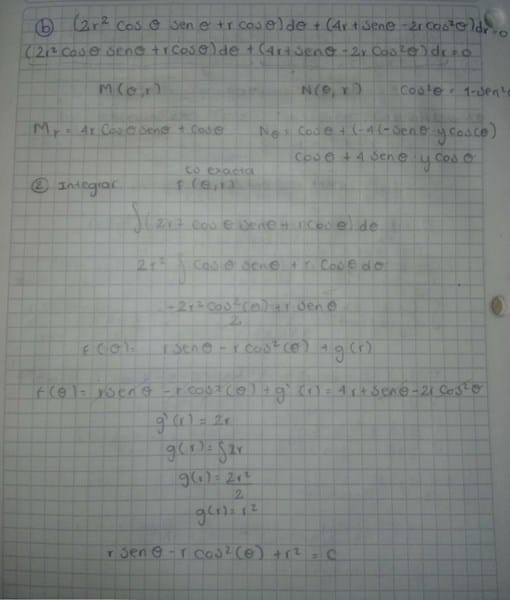 b) (2r² cos θ sen θ + r cos θ) dθ + (4r + sen θ - 2r cos²θ) dr = 0
(2r² cos θ sen θ + r cos θ) dθ + (4r + sen θ - 2r cos²θ) dr = 0
M(θ,r) N(θ,r) cos²θ = 1-sen²
Mr = 4r cos θ sen θ + cos θ Nθ = cos θ + (-4(-sen θ · y cos θ)
cos θ + 4 sen θ · y cos θ
exacta
② Integrar f(θ,r)
∫(2r² cos θ sen θ + r cos θ) dθ
2r² ∫ cos θ sen θ + r cos θ dθ
-2r² cos²(θ) + r sen θ
2
f(θ) = r sen θ - r cos²(θ) + g(r)
f(θ) = r sen θ - r cos²(θ) + g'(r) = 4r + sen θ - 2r cos²θ
g'(r) = 2r
g(r) = ∫2r
g(r) = 2r²
2
g(r) = r²
r sen θ - r cos²(θ) + r² = c